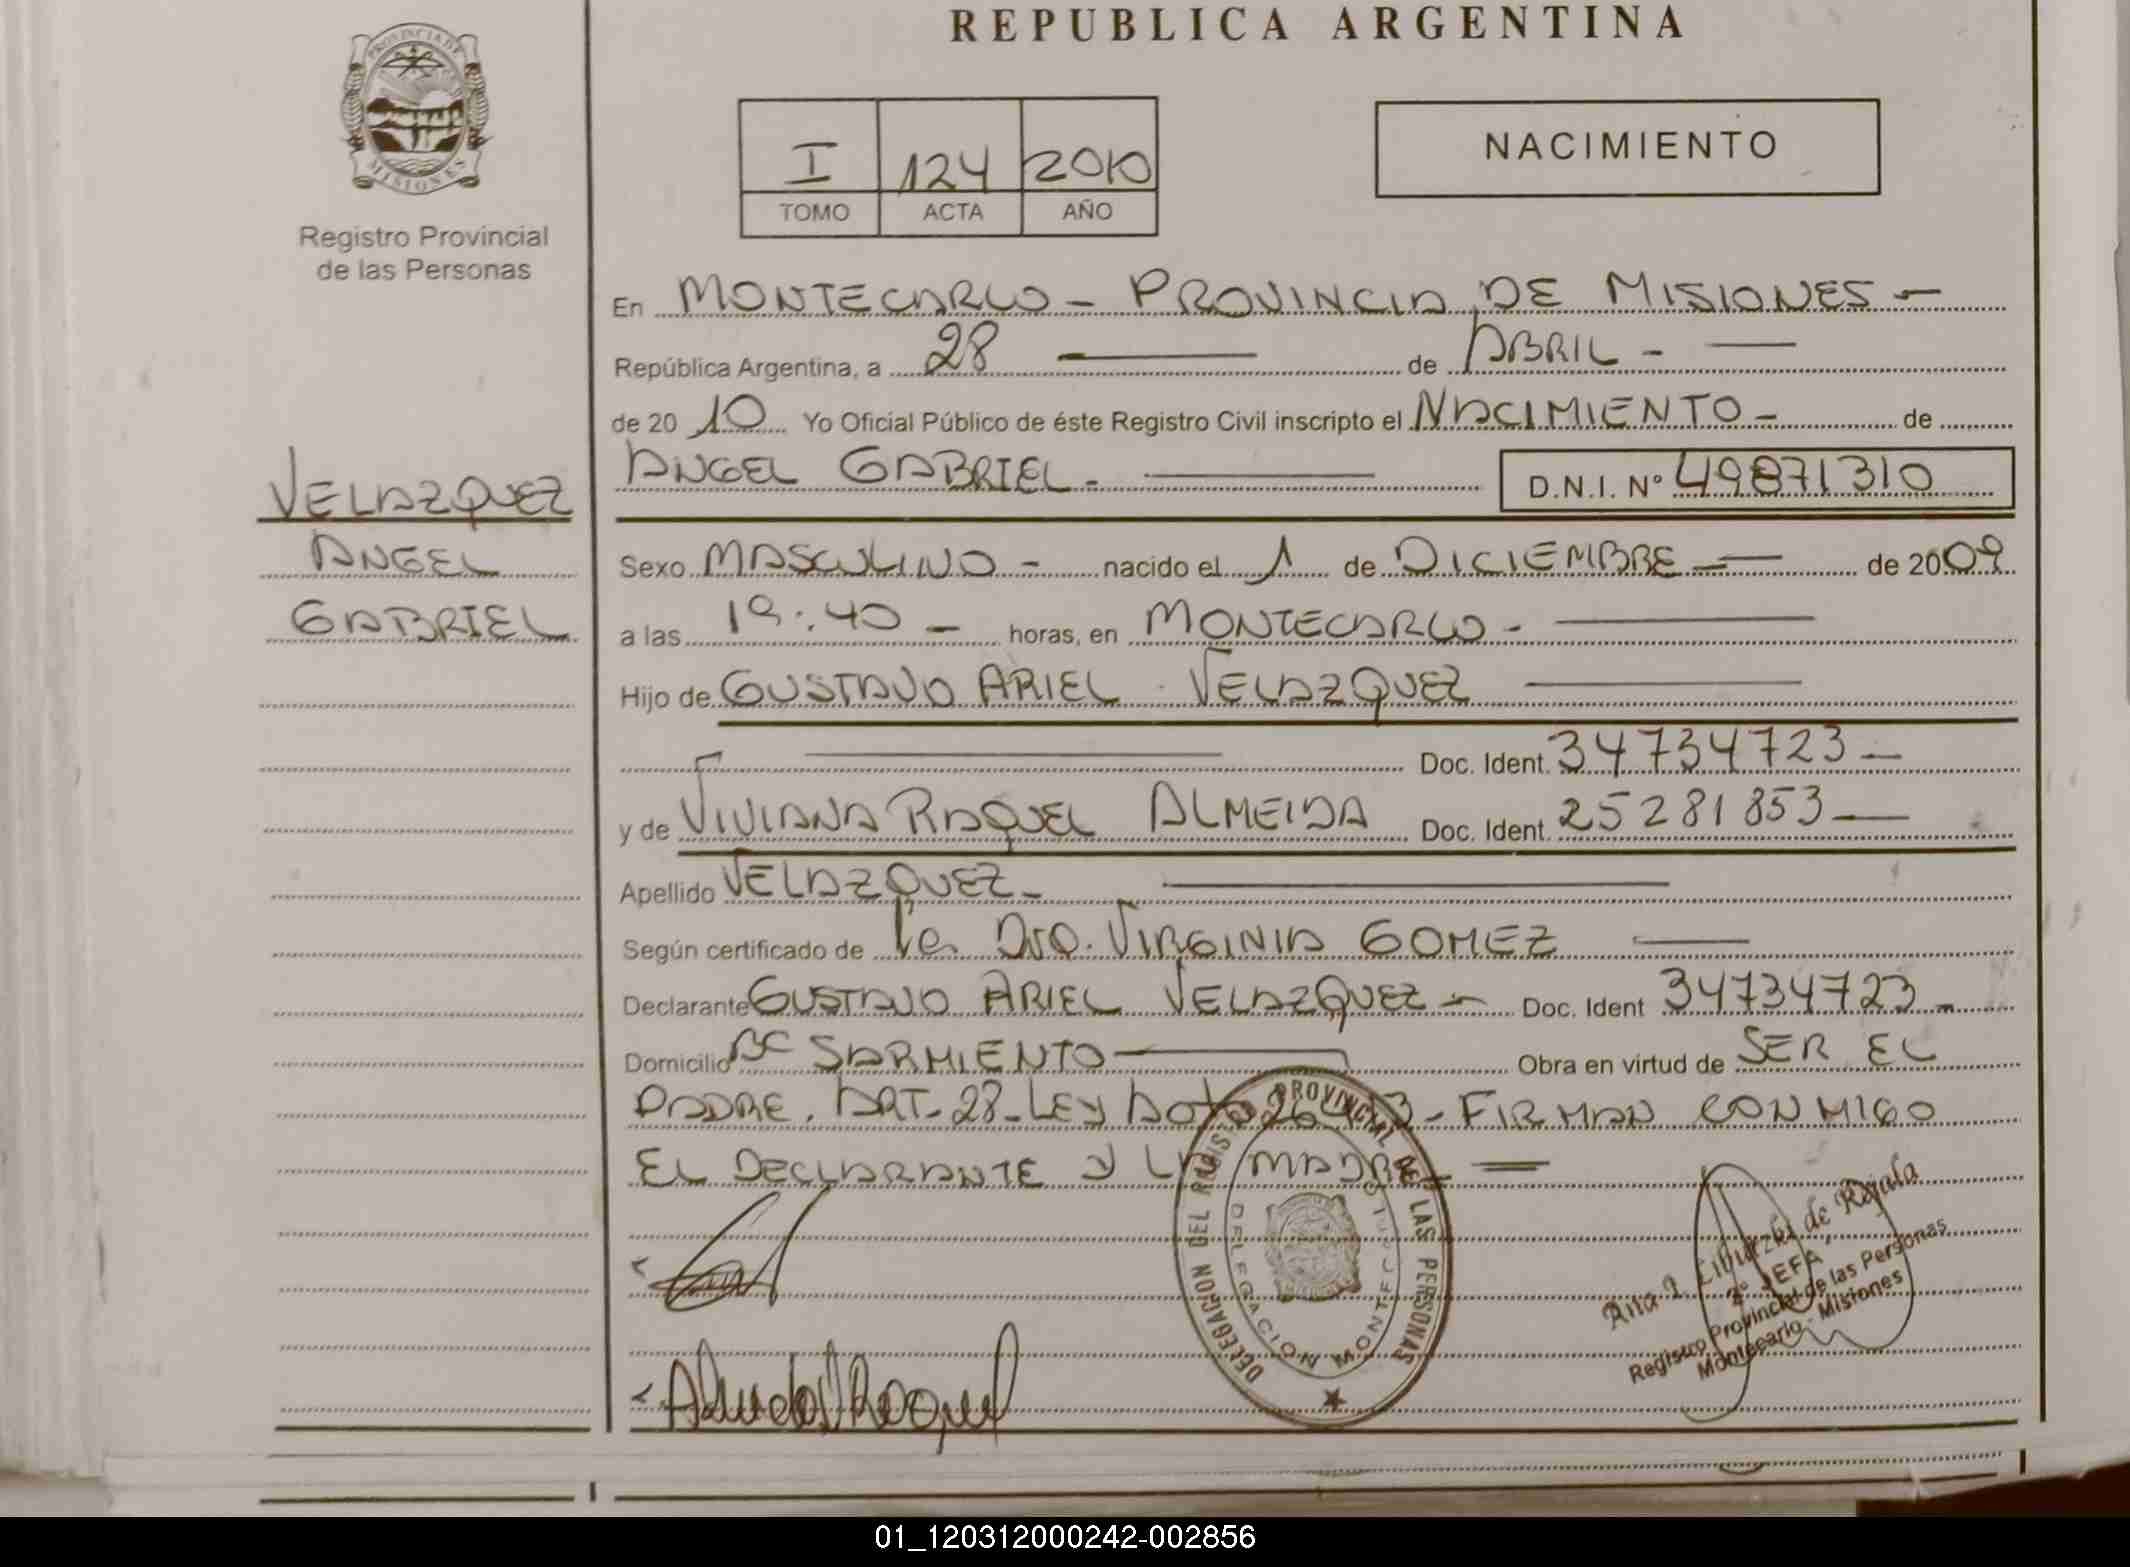 REPUBLICA ARGENTINA
PROVINCIA DE
MISIONES
Registro Provincial
de las Personas
I 124 2010
TOMO ACTA AÑO
NACIMIENTO
En MONTECARLO - PROVINCIA DE MISIONES -
República Argentina, a 28 de ABRIL -
de 2010 Yo Oficial Público de éste Registro Civil inscripto el NACIMIENTO - de
ANGEL GABRIEL - D.N.I. N° 49871310
VELAZQUEZ
ANGEL
GABRIEL
Sexo MASCULINO - nacido el 1 de DICIEMBRE - de 2009
a las 19:40 - horas, en MONTECARLO -
Hijo de GUSTAVO ARIEL VELAZQUEZ
Doc. Ident. 34734723 -
y de VIVIANA RAQUEL ALMEIDA Doc. Ident. 25281853 -
Apellido VELAZQUEZ -
Según certificado de la Dra. VIRGINIA GOMEZ
Declarante GUSTAVO ARIEL VELAZQUEZ - Doc. Ident 34734723 -
Domicilio Bº SARMIENTO Obra en virtud de SER EL
PADRE. ART. 28 - LEY 26413 - FIRMAN CONMIGO
EL DECLARANTE Y LA MADRE
DELEGACION DEL REGISTRO PROVINCIAL DE LAS PERSONAS
DELEGACION MONTECARLO
de Rojala
2º JEFA
Registro Provincial de las Personas
Montecarlo - Misiones
Raquel
01_120312000242-002856